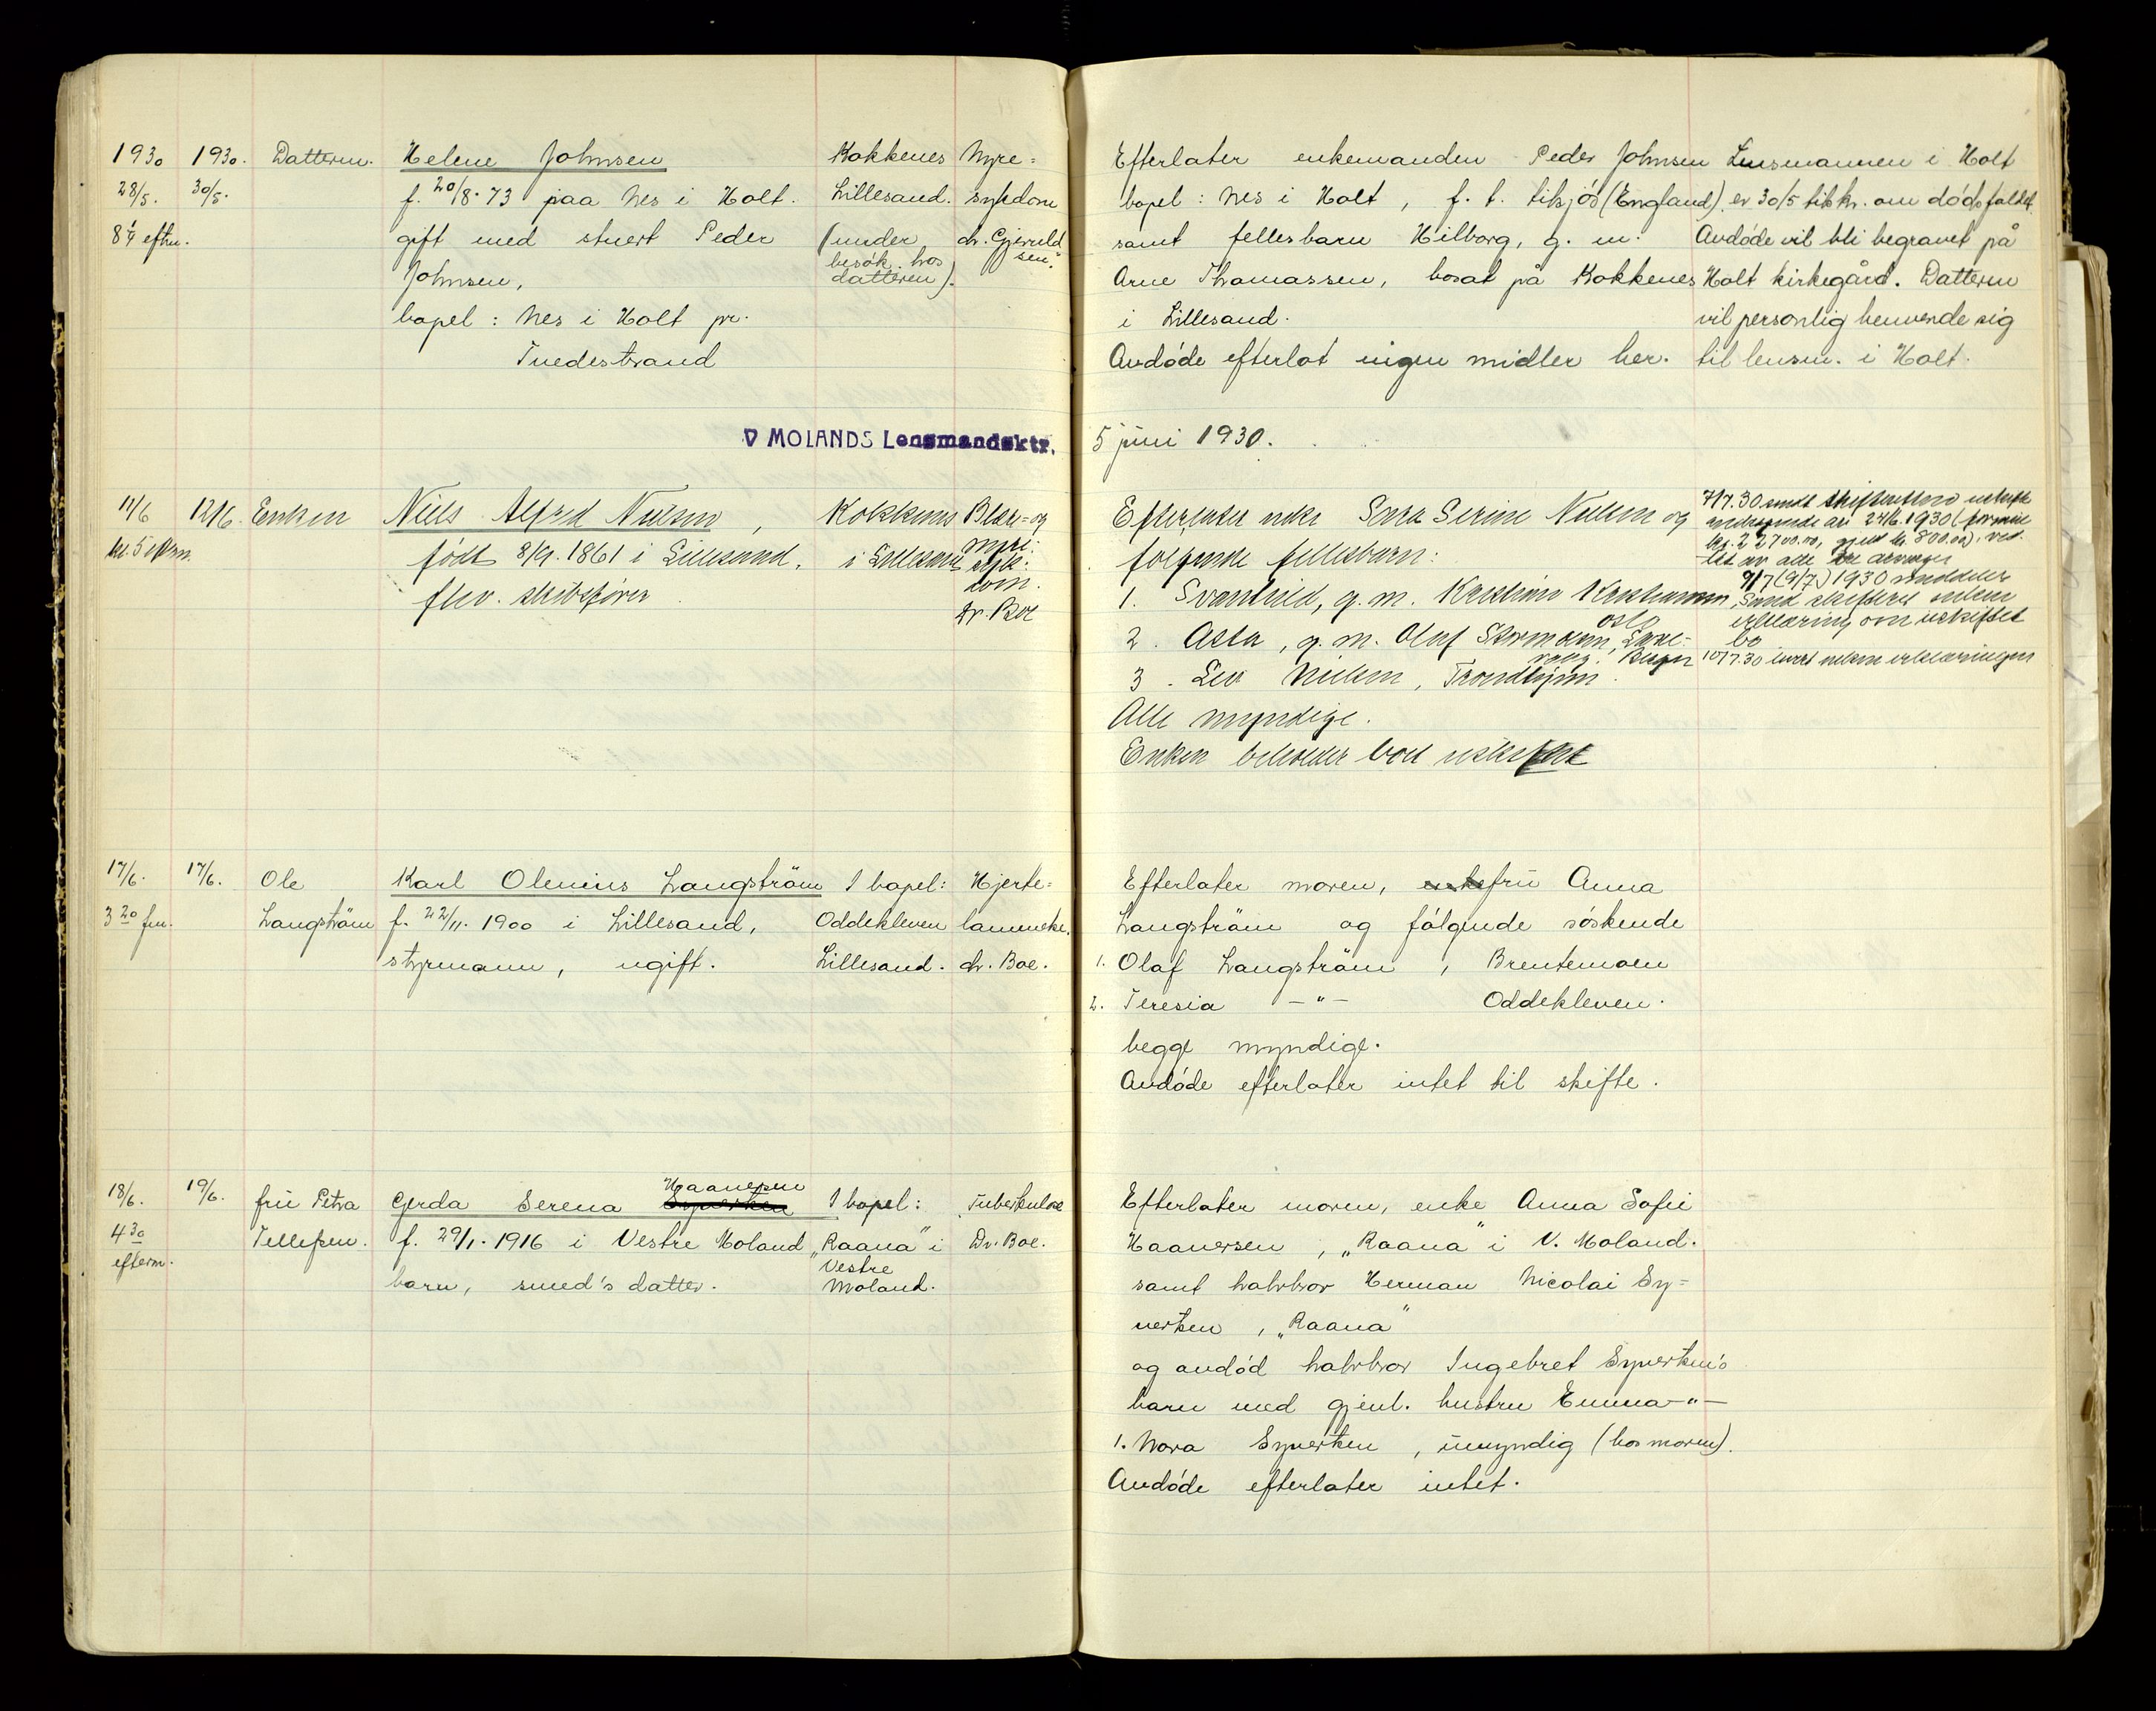 1930 1930. Datteren. Helene Johnsen Kokkenes Nyre=
28/5. 30/5. f. 20/8. 73 paa Nes i Holt. Lillesand. sykdom
8 1/4 eftm. gift med stuert Peder (under dr. Gjeruld
besøk hos sen."
Johnsen, datteren).
bopel : Nes i Holt pr.
Tvedestrand
V MOLANDS Lensmandsktr.
11/6 12/6. Enken Niels Alfred Nielsen, Kokkenes Blære= og
kl. 5 efterm. født 8/9. 1861 i Lillesand. i Lillesand nyre:
syk:
flev. skibsfører dom.
dr. Boe
17/6. 17/6. Ole Karl Olenius Langström I bopel: Hjerte=
3 20 fm. Langström f. 22/11. 1900 i Lillesand, Oddekleven lammelse.
styrmann, ugift. Lillesand. dr. Boe.
18/6. 19/6. fru Petra Gerda Serena Haanersen I bopel: Tuberkulose
4 30 Tellefsen. f. 29/1. 1916 i Vestre Moland „Raana" i Dr. Boe.
efterm. Vestre
barn, smed's datter. Moland.
Efterlater enkemanden Peder Johnsen Lensmannen i Holt
bopel : Nes i Holt , f. t. tilsjøs (England). er 30/5 tilskr. om dødsfallet.
samt fellesbarn Hilborg, g. m. Avdøde vil bli begravet på
Arne Thomassen, bosat på Kokkenes Holt kirkegård. Datteren
i Lillesand. vil personlig henvende sig
Avdøde efterlot ingen midler her. til lensm. i Holt.
5 juni 1930.
Efterlater enke Sara Serine Nielsen og
følgende fellesbarn:
1. Svanhild, g. m.
Oslo
2. Asta, g. m. Olaf Stormoen,
Bergen
3. Nielsen, Trondhjem.
Alle myndige.
Enken beholder boet uskiftet
7/7.30 sendt skifteretten
24/6.1930 (formue
kr. 22700.00, gjeld kr. 800.00)
av alle arvinger
9/7 (8/7) 1930 meddeler
Sand skifteret enken
erklæring om uskiftet
bo
10/7.30 enken erklæringen
Efterlater moren, fru Anna
Langström og følgende søskende
1. Olaf Langström , Brentemoen
2. Teresia — " — Oddekleven.
begge myndige.
Avdøde efterlater intet til skifte.
Efterlater moren, enke Anna Sofie
Haanersen , „Raana" i V. Moland.
samt halvbror Herman Nicolai Sy=
vertsen , „Raana"
og avdød halvbror Ingebret Syvertsen's
barn med gjenl. hustru Emma — " —
1. Nora Syvertsen , umyndig (hos moren).
Avdøde efterlater intet.